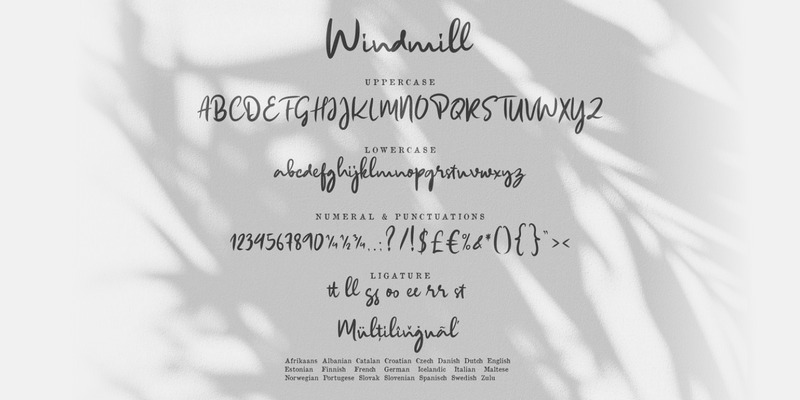 Windmill
UPPERCASE
ABCDEFGHIJKLMNOPQRSTUVWXYZ
LOWERCASE
abcdefghijklmnopqrstuvwxyz
NUMERAL & PUNCTUATIONS
1234567890¼½¾,..:?/!$£€%&*(){}"><
LIGATURE
tt ll gg oo ee rr st
Afrikaans Albanian Catalan Croatian Czech Danish Dutch English
Estonian Finnish French German Icelandic Italian Maltese
Norwegian Portugese Slovak Slovenian Spanisch Swedish Zulu